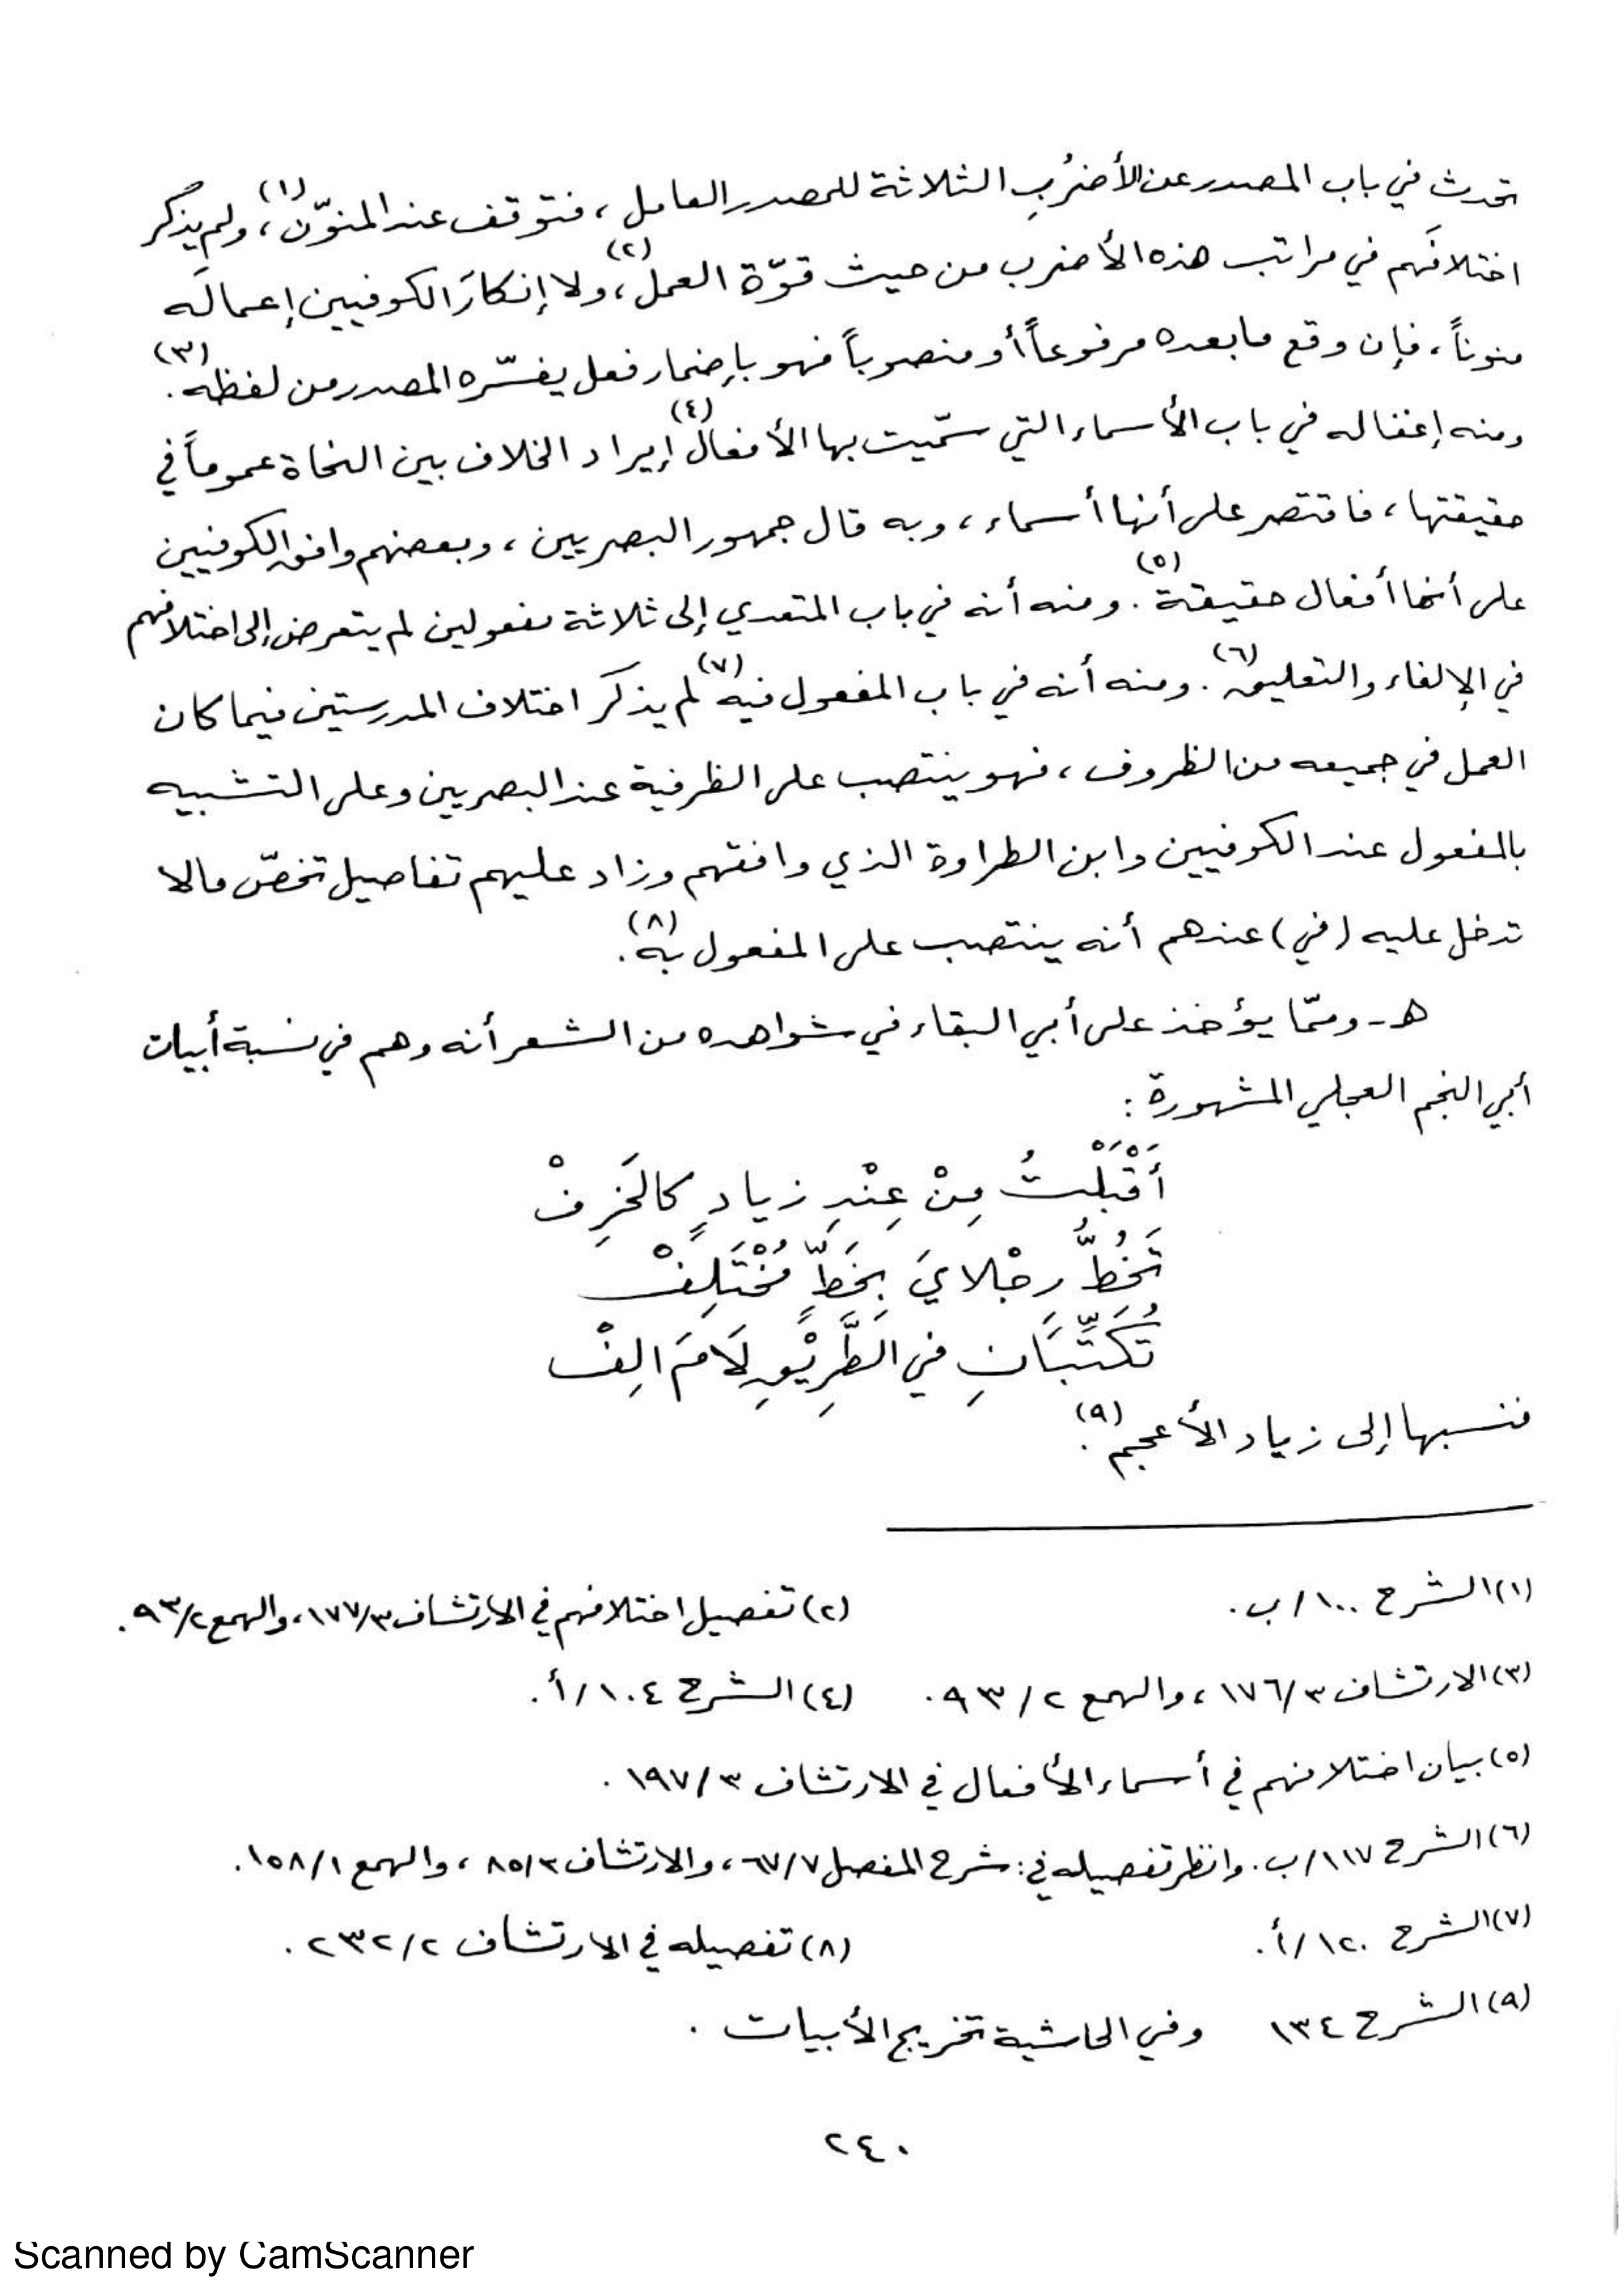 تحدث في باب المصدر عن الأضرُبِ الثلاثة للمصدر العامل ، فتوقف عند المنوّن(١)، ولم يذكر
اختلافَهم في مراتب هذه الأضرب من حيث قوّة العمل(٢)، ولا إنكارَ الكوفيين إعمالَه
منوناً ، فإن وقع ما بعده مرفوعاً أو منصوباً فهو بإضمار فعل يفسّره المصدر من لفظه(٣).
ومنه إغفاله في باب الأسماء التي سمّيت بها الأفعال(٤) إيراد الخلاف بين النحاة عموماً في
حقيقتها ، فاقتصر على أنها أسماء ، وبه قال جمهور البصريين ، وبعضهم وافق الكوفيين
على أنها أفعال حقيقة(٥). ومنه أنه في باب المتعدي إلى ثلاثة مفعولين لم يتعرض إلى اختلافهم
في الإلغاء والتعليق(٦). ومنه أنه في باب المفعول فيه(٧) لم يذكر اختلاف المدرستين فيما كان
العمل في جميعه من الظروف ، فهو ينتصب على الظرفية عند البصريين وعلى التشبيه
بالمفعول عند الكوفيين وابن الطراوة الذي وافقهم وزاد عليهم تفاصيل تخصّ مالا
تدخل عليه (في) عندهم أنه ينتصب على المفعول به(٨).
هـ - وممّا يؤخذ على أبي البقاء في شواهده من الشعر أنه وهم في نسبة أبيات
أبي النجم العجلي المشهورة :
أَقْبَلْتُ مِنْ عِنْدِ زيادٍ كالخَرِفْ
تَخُطُّ رجْلايَ بِخَطٍّ مُخْتَلِفْ
تُكَتِّبَانِ في الطَّرِيْقِ لَامَ الِفْ
فنسبها إلى زياد الأعجم(٩).
(١) الشرح ١٠٠/ب.
(٢) تفصيل اختلافهم في الارتشاف ١٧٧/٣، والهمع ٩٣/٢.
(٣) الارتشاف ١٧٦/٣ ، والهمع ٩٣/٢.
(٤) الشرح ١٠٤/أ.
(٥) بيان اختلافهم في أسماء الأفعال في الارتشاف ١٩٧/٣ .
(٦) الشرح ١١٧/ب. وانظر تفصيله في : شرح المفصل ٦٧/٧، والارتشاف ٨٥/٣ ، والهمع ١٥٨/١.
(٧) الشرح ١٢٠/أ.
(٨) تفصيله في الارتشاف ٢٣٢/٢ .
(٩) الشرح ١٣٤ وفي الحاشية تخريج الأبيات .
٢٤٠
Scanned by CamScanner